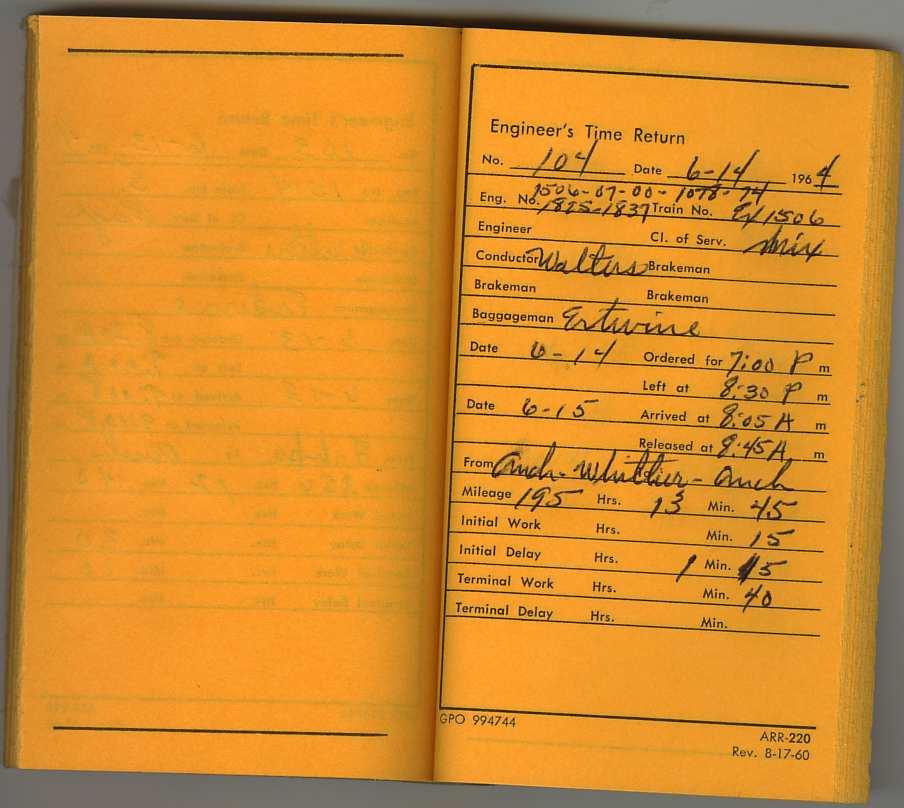 Engineer's Time Return
No. 104 Date 6-14 1964
1506-07-00-1078-74
Eng. No. 1825-1837 Train No. Ex 1506
Engineer Cl. of Serv. Mix
Conductor Walters Brakeman
Brakeman Brakeman
Baggageman Ertwine
Date 6-14 Ordered for 7:00 P m
Left at 8:30 P m
Date 6-15 Arrived at 8:05 A m
Released at 8:45 A m
From Anch-Whittier-Anch
Mileage 195 Hrs. 13 Min. 45
Initial Work Hrs. Min. 15
Initial Delay Hrs. 1 Min. 15
Terminal Work Hrs. Min. 40
Terminal Delay Hrs. Min.
GPO 994744
ARR-220
Rev. 8-17-60